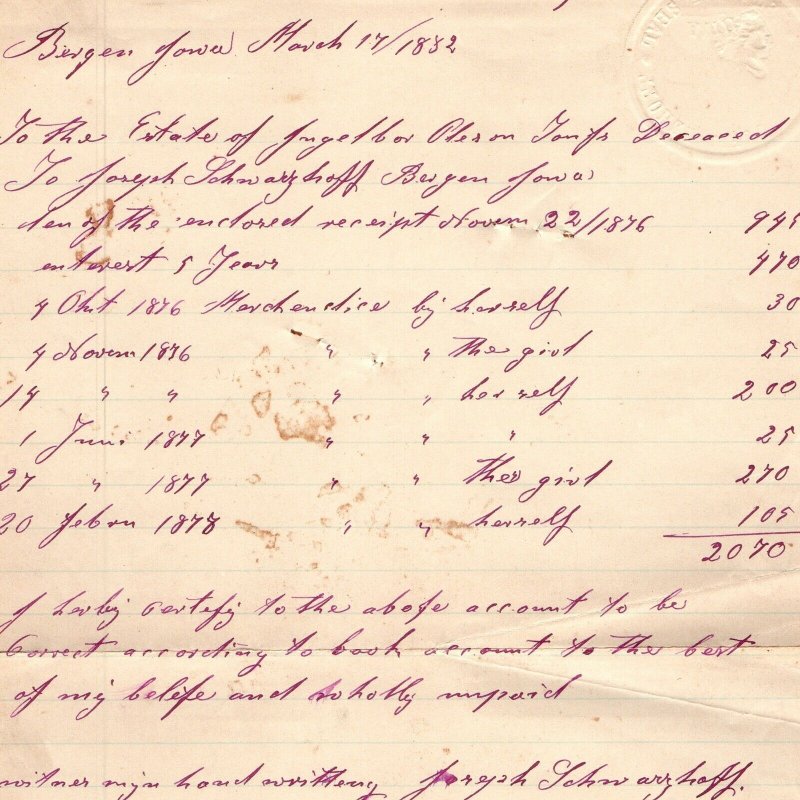 Bergen Iowa March 17/1882
To the Estate of Ingelbor Oleson Deceased
To Joseph Schwarzhoff Bergen Iowa
of the enclosed receipt Novem 22/1876 945
enterest 5 Years 470
4 Okt 1876 Merchendice by herself 30
4 Novem 1876 " " the girl 25
14 " " " " herself 200
1 Juni 1877 " " " 25
27 " 1877 " " ther girl 270
20 Febru 1878 " " herself 105
2070
I herby certefy to the abofe account to be
Correct according to book account to the best
of my belefe and wholly unpaid
witnes myn hand writteng Joseph Schwarzhoff.